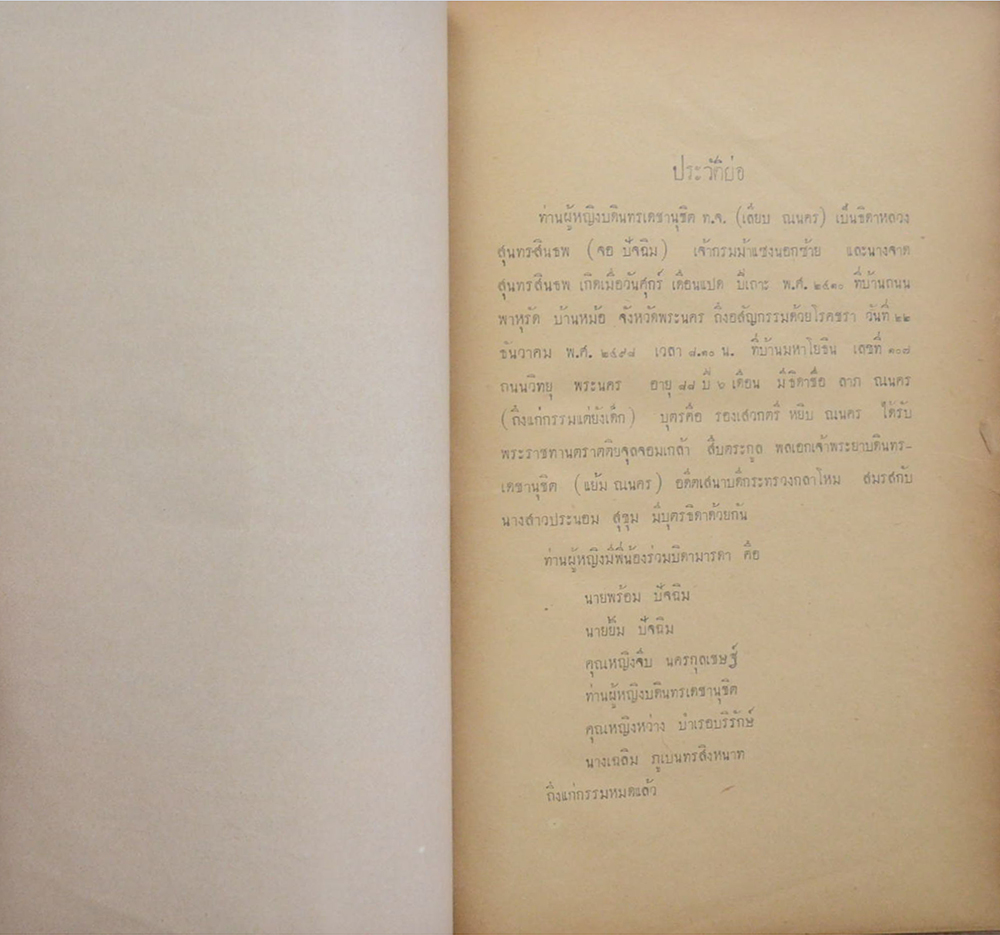 ประวัติย่อ
ท่านผู้หญิงบดินทรเดชานุชิต ท.จ. (เลี่ยบ ณนคร) เป็นธิดาหลวง
สุนทรสินธพ (จอ ปัจฉิม) เจ้ากรมม้าแซงนอกซ้าย และนางจาด
สุนทรสินธพ เกิดเมื่อวันศุกร์ เดือนแปด ปีเถาะ พ.ศ. ๒๔๑๐ ที่บ้านถนน
พาหุรัด บ้านหม้อ จังหวัดพระนคร ถึงอสัญกรรมด้วยโรคชรา วันที่ ๒๒
ธันวาคม พ.ศ. ๒๔๙๘ เวลา ๘.๑๐ น. ที่บ้านมหาโยธิน เลขที่ ๑๐๘
ถนนวิทยุ พระนคร อายุ ๘๘ ปี ๖ เดือน มีธิดาชื่อ ลาภ ณนคร
(ถึงแก่กรรมแต่ยังเด็ก) บุตรคือ รองเสวกตรี หยิบ ณนคร ได้รับ
พระราชทานตราตติยจุลจอมเกล้า สืบตระกูล พลเอกเจ้าพระยาบดินทร-
เดชานุชิต (แย้ม ณนคร) อดีตเสนาบดีกระทรวงกลาโหม สมรสกับ
นางสาวประนอม สุขุม มีบุตรธิดาด้วยกัน
ท่านผู้หญิงมีพี่น้องร่วมบิดามารดา คือ
นายพร้อม ปัจฉิม
นายยิ้ม ปัจฉิม
คุณหญิงจีบ นครกุลเชษฐ์
ท่านผู้หญิงบดินทรเดชานุชิต
คุณหญิงหว่าง บำเรอบริรักษ์
นางเฉลิม ภูเบนทรสิงหนาท
ถึงแก่กรรมหมดแล้ว